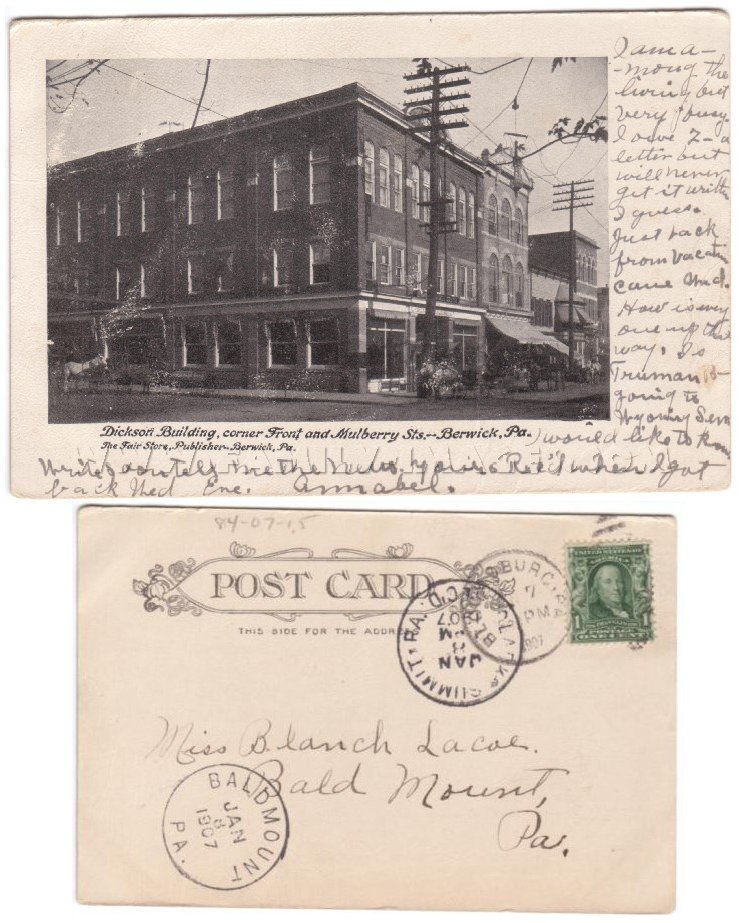 I am a-
-mong the
living but
very busy.
I owe 2- a
letter but
will never
get it written
I guess.
Just back
from vacation
came Wed.
How is every
one up the
way. Is
Truman
going to
Wyoming Sem
I would like to know
Dickson Building, corner Front and Mulberry Sts.--Berwick, Pa.
The Fair Store, Publisher-Berwick, Pa.
Write soon tell me the news. yours Rec'd when I got
back Wed Eve. Annabel.
84-07-15
POST CARD
THIS SIDE FOR THE ADDRE
BURG, PA
7
PM
1907
CLARKS SUMMIT, PA.
REC'D
JAN
8
PM
07
UNITED STATES OF AMERICA
FRANKLIN
1 POSTAGE 1
ONE CENT
Miss Blanch Lacoe.
Bald Mount,
Pa.
BALDMOUNT
JAN
8
1907
PA.